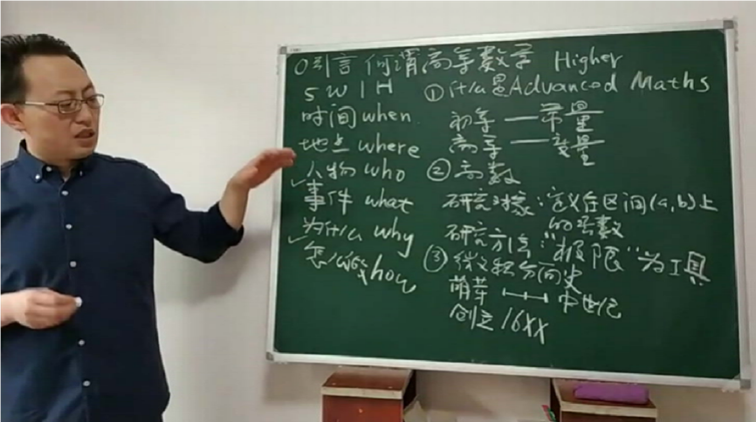 0引言 何谓高等数学 Higher
5W1H
时间 when
地点 where
人物 who
✓事件 what
为什么 why
✓怎么 how
①什么是Advanced Maths
初等 — 常量
高等 — 变量
②高数
研究对象:定义在区间(a,b)上
的函数
研究方法:"极限"为工具
③微积分简史
萌芽 中世纪
创立 16XX